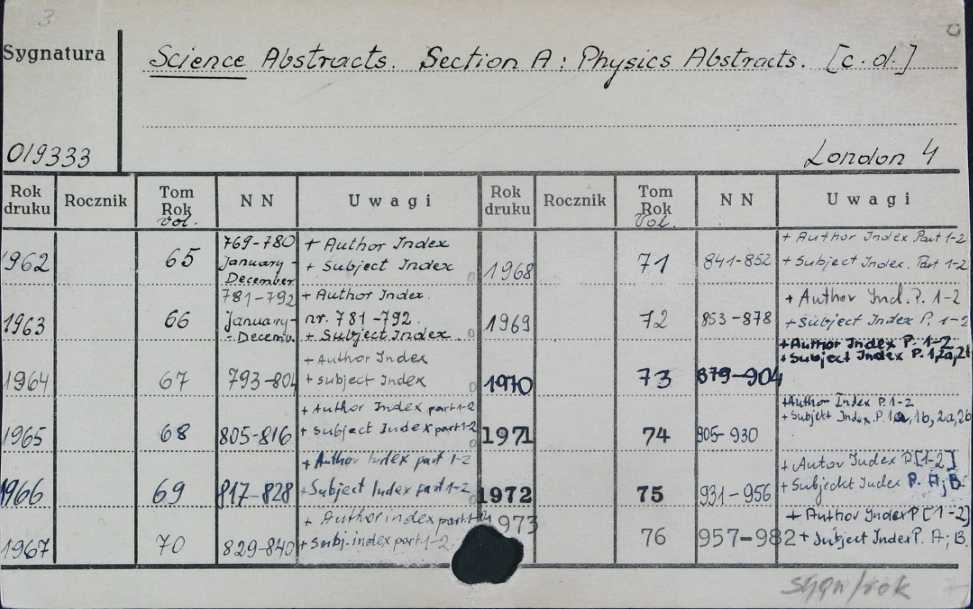 3
Sygnatura
Science Abstracts. Section A: Physics Abstracts. [c.d.]
019333
London 4
Rok druku Rocznik Tom Rok Vol. NN Uwagi Rok druku Rocznik Tom Rok Vol. NN Uwagi
1962 65 769-780 January - December + Author Index + Subject Index
1963 66 781-792 January - Decemb. + Author Index nr. 781-792. + Subject Index.
1964 67 793-804 + Author Index + Subject Index
1965 68 805-816 + Author Index part 1-2 + Subject Index part 1-2
1966 69 817-828 + Author Index part 1-2 + Subject Index part 1-2
1967 70 829-840 + Author index part 1-2 + Subj. index part 1-2
1968 71 841-852 + Author Index Part 1-2 + Subject Index. Part 1-2
1969 72 853-878 + Author Ind. P. 1-2 + Subject Index P. 1-2
1970 73 879-904 + Author Index P. 1-2 + Subject Index P. 1, 2a, 2b
1971 74 905-930 + Author Index P. 1-2 + Subjekt Index. P. 1a, 1b, 2a, 2b
1972 75 931-956 + Autor Index P[1-2] + Subjeckt Index P. A; B.
1973 76 957-982 + Author Index P[1-2] + Subject Index P. A; B.
sygn/rok